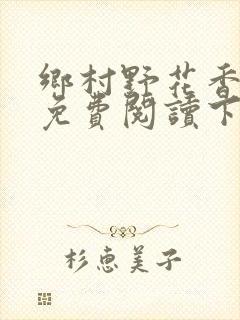 鄉村野花香
免費閱讀下
杉恵美子